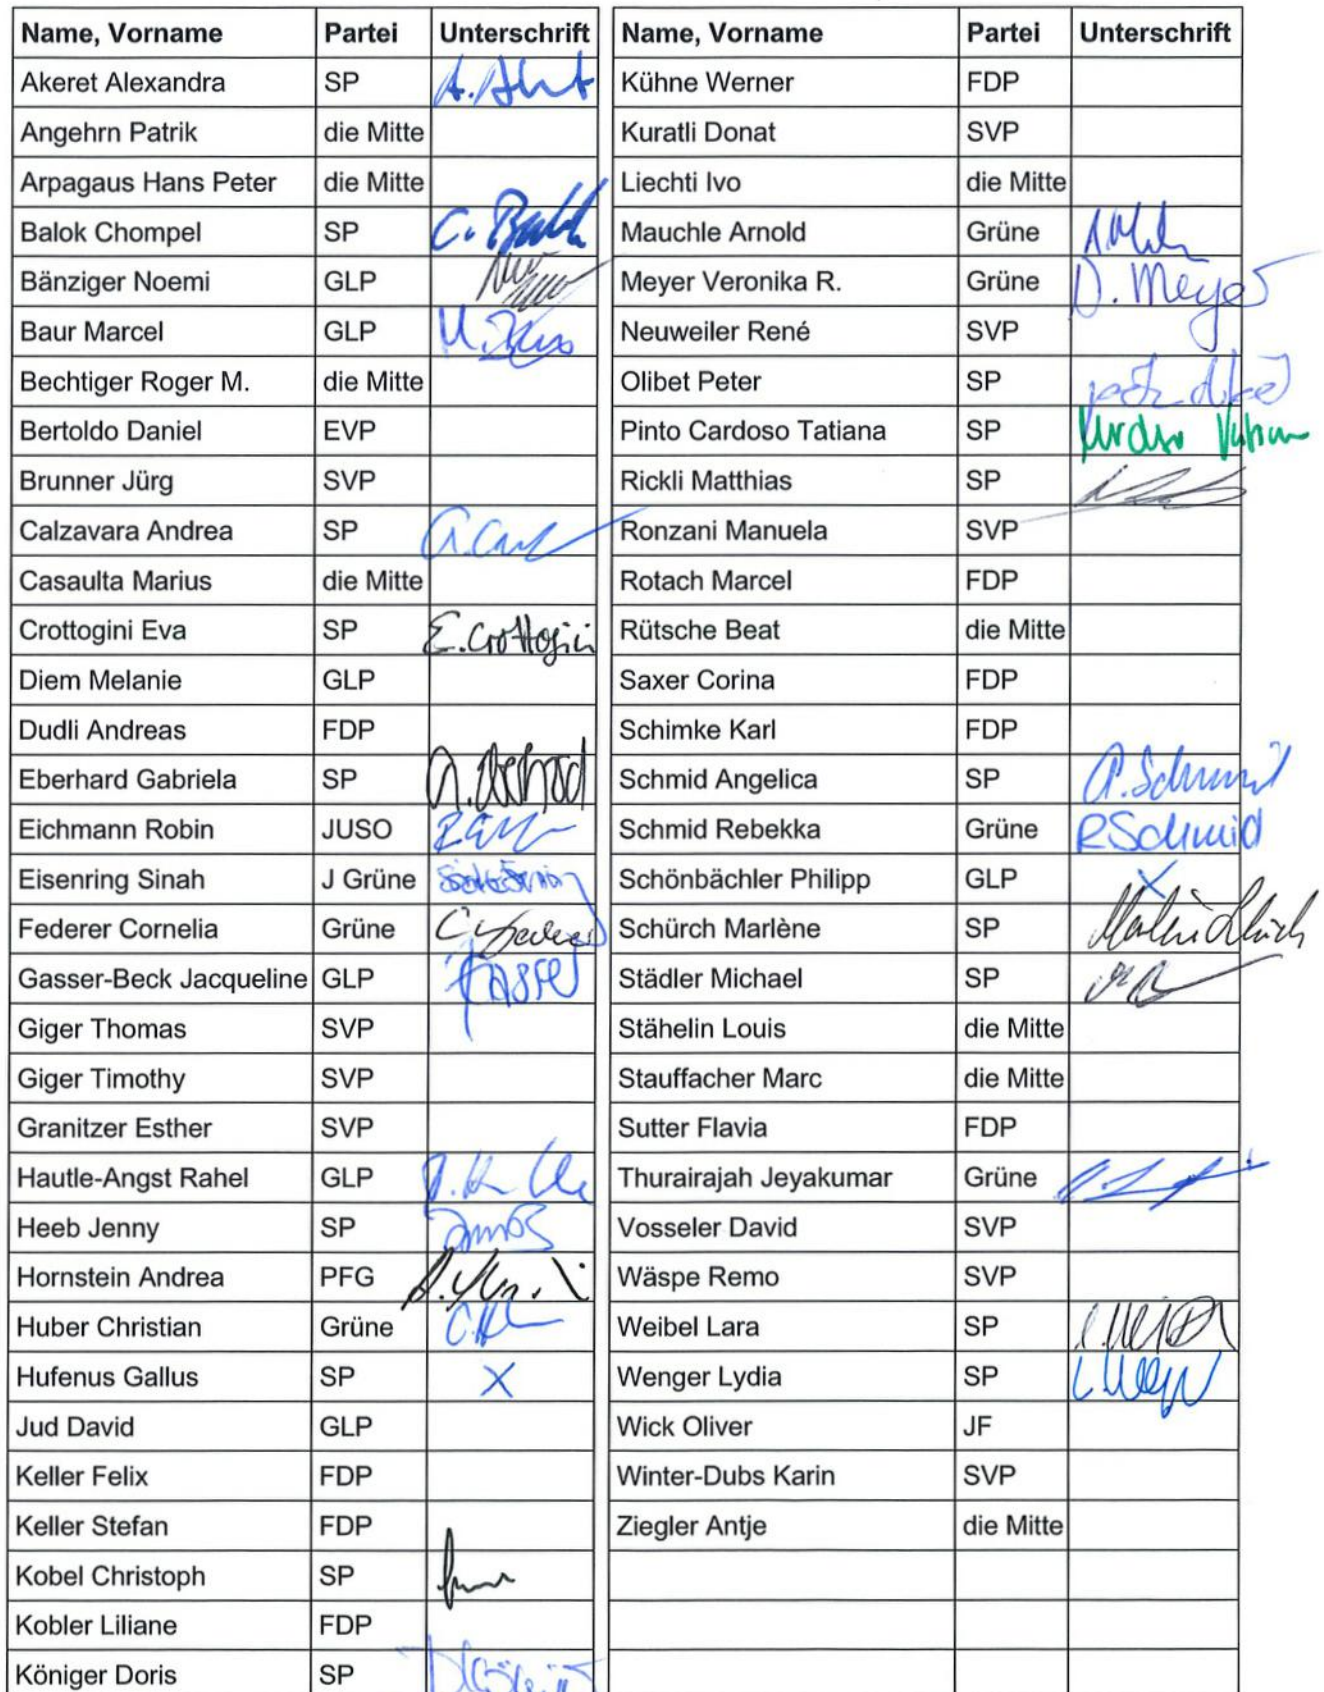 Name, Vorname Partei Unterschrift
Akeret Alexandra SP
Angehrn Patrik die Mitte
Arpagaus Hans Peter die Mitte
Balok Chompel SP C. Balok
Bänziger Noemi GLP
Baur Marcel GLP
Bechtiger Roger M. die Mitte
Bertoldo Daniel EVP
Brunner Jürg SVP
Calzavara Andrea SP
Casaulta Marius die Mitte
Crottogini Eva SP E. Crottogini
Diem Melanie GLP
Dudli Andreas FDP
Eberhard Gabriela SP
Eichmann Robin JUSO
Eisenring Sinah J Grüne
Federer Cornelia Grüne
Gasser-Beck Jacqueline GLP
Giger Thomas SVP
Giger Timothy SVP
Granitzer Esther SVP
Hautle-Angst Rahel GLP
Heeb Jenny SP
Hornstein Andrea PFG
Huber Christian Grüne
Hufenus Gallus SP X
Jud David GLP
Keller Felix FDP
Keller Stefan FDP
Kobel Christoph SP
Kobler Liliane FDP
Königer Doris SP
Name, Vorname Partei Unterschrift
Kühne Werner FDP
Kuratli Donat SVP
Liechti Ivo die Mitte
Mauchle Arnold Grüne
Meyer Veronika R. Grüne V. Meyer
Neuweiler René SVP
Olibet Peter SP
Pinto Cardoso Tatiana SP
Rickli Matthias SP
Ronzani Manuela SVP
Rotach Marcel FDP
Rütsche Beat die Mitte
Saxer Corina FDP
Schimke Karl FDP
Schmid Angelica SP A. Schmid
Schmid Rebekka Grüne RSchmid
Schönbächler Philipp GLP X
Schürch Marlène SP
Städler Michael SP
Stähelin Louis die Mitte
Stauffacher Marc die Mitte
Sutter Flavia FDP
Thurairajah Jeyakumar Grüne
Vosseler David SVP
Wäspe Remo SVP
Weibel Lara SP
Wenger Lydia SP
Wick Oliver JF
Winter-Dubs Karin SVP
Ziegler Antje die Mitte